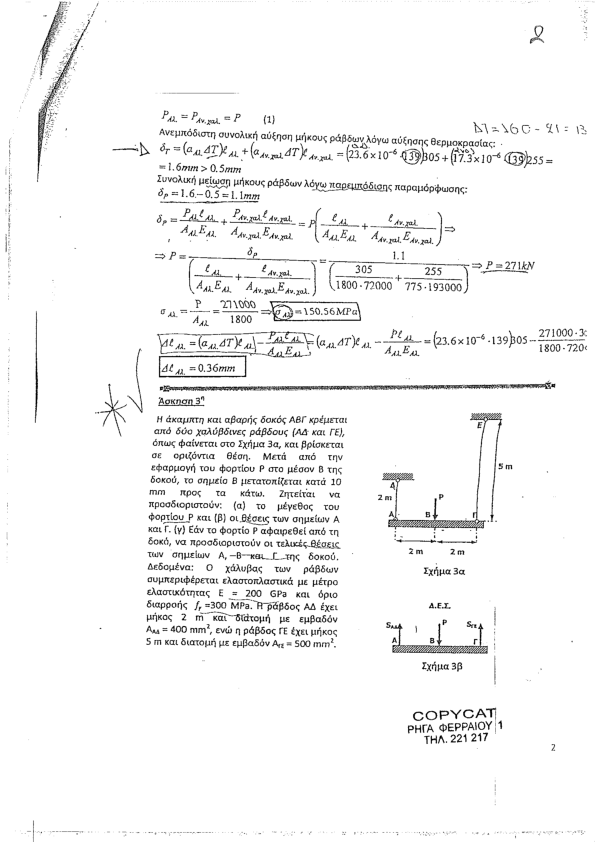 2
P_Αλ. = P_Αν.χαλ. = P (1)
ΔΤ = 160 - 21 = 13
Ανεμπόδιστη συνολική αύξηση μήκους ράβδων λόγω αύξησης θερμοκρασίας:
δ_T = (α_Αλ. ΔT)ℓ_Αλ. + (α_Αν.χαλ. ΔT)ℓ_Αν.χαλ. = (23.6×10^-6 · 139)305 + (17.3×10^-6 · 139)255 =
= 1.6mm > 0.5mm
Συνολική μείωση μήκους ράβδων λόγω παρεμπόδισης παραμόρφωσης:
δ_P = 1.6 - 0.5 = 1.1mm
δ_P = P_Αλ. ℓ_Αλ. / A_Αλ. E_Αλ. + P_Αν.χαλ. ℓ_Αν.χαλ. / A_Αν.χαλ. E_Αν.χαλ. = P(ℓ_Αλ. / A_Αλ. E_Αλ. + ℓ_Αν.χαλ. / A_Αν.χαλ. E_Αν.χαλ.) ⇒
⇒ P = δ_P / (ℓ_Αλ. / A_Αλ. E_Αλ. + ℓ_Αν.χαλ. / A_Αν.χαλ. E_Αν.χαλ.) = 1.1 / (305 / 1800·72000 + 255 / 775·193000) ⇒ P = 271kN
σ_Αλ. = P / A_Αλ. = 271000 / 1800 ⇒ σ_Αλ = 150.56MPa
Δℓ_Αλ. = (α_Αλ. ΔT)ℓ_Αλ. - P_Αλ. ℓ_Αλ. / A_Αλ. E_Αλ. = (α_Αλ. ΔT)ℓ_Αλ. - Pℓ_Αλ. / A_Αλ. E_Αλ. = (23.6×10^-6 · 139)305 - 271000·3 / 1800·720
Δℓ_Αλ. = 0.36mm
Άσκηση 3η
Η άκαμπτη και αβαρής δοκός ΑΒΓ κρέμεται
από δύο χαλύβδινες ράβδους (ΑΔ και ΓΕ),
όπως φαίνεται στο Σχήμα 3α, και βρίσκεται
σε οριζόντια θέση. Μετά από την
εφαρμογή του φορτίου P στο μέσον Β της
δοκού, το σημείο Β μετατοπίζεται κατά 10
mm προς τα κάτω. Ζητείται να
προσδιοριστούν: (α) το μέγεθος του
φορτίου P και (β) οι θέσεις των σημείων Α
και Γ. (γ) Εάν το φορτίο P αφαιρεθεί από τη
δοκό, να προσδιοριστούν οι τελικές θέσεις
των σημείων Α, Β και Γ της δοκού.
Δεδομένα: Ο χάλυβας των ράβδων
συμπεριφέρεται ελαστοπλαστικά με μέτρο
ελαστικότητας Ε = 200 GPa και όριο
διαρροής f_Y =300 MPa. Η ράβδος ΑΔ έχει
μήκος 2 m και διατομή με εμβαδόν
Α_ΑΔ = 400 mm², ενώ η ράβδος ΓΕ έχει μήκος
5 m και διατομή με εμβαδόν Α_ΓΕ = 500 mm².
E
5 m
Δ
2 m
P
A B Γ
2 m 2 m
Σχήμα 3α
Δ.Ε.Σ.
S_ΑΔ P S_ΓΕ
A B Γ
Σχήμα 3β
COPYCAT
ΡΗΓΑ ΦΕΡΡΑΙΟΥ 1
ΤΗΛ. 221 217
2